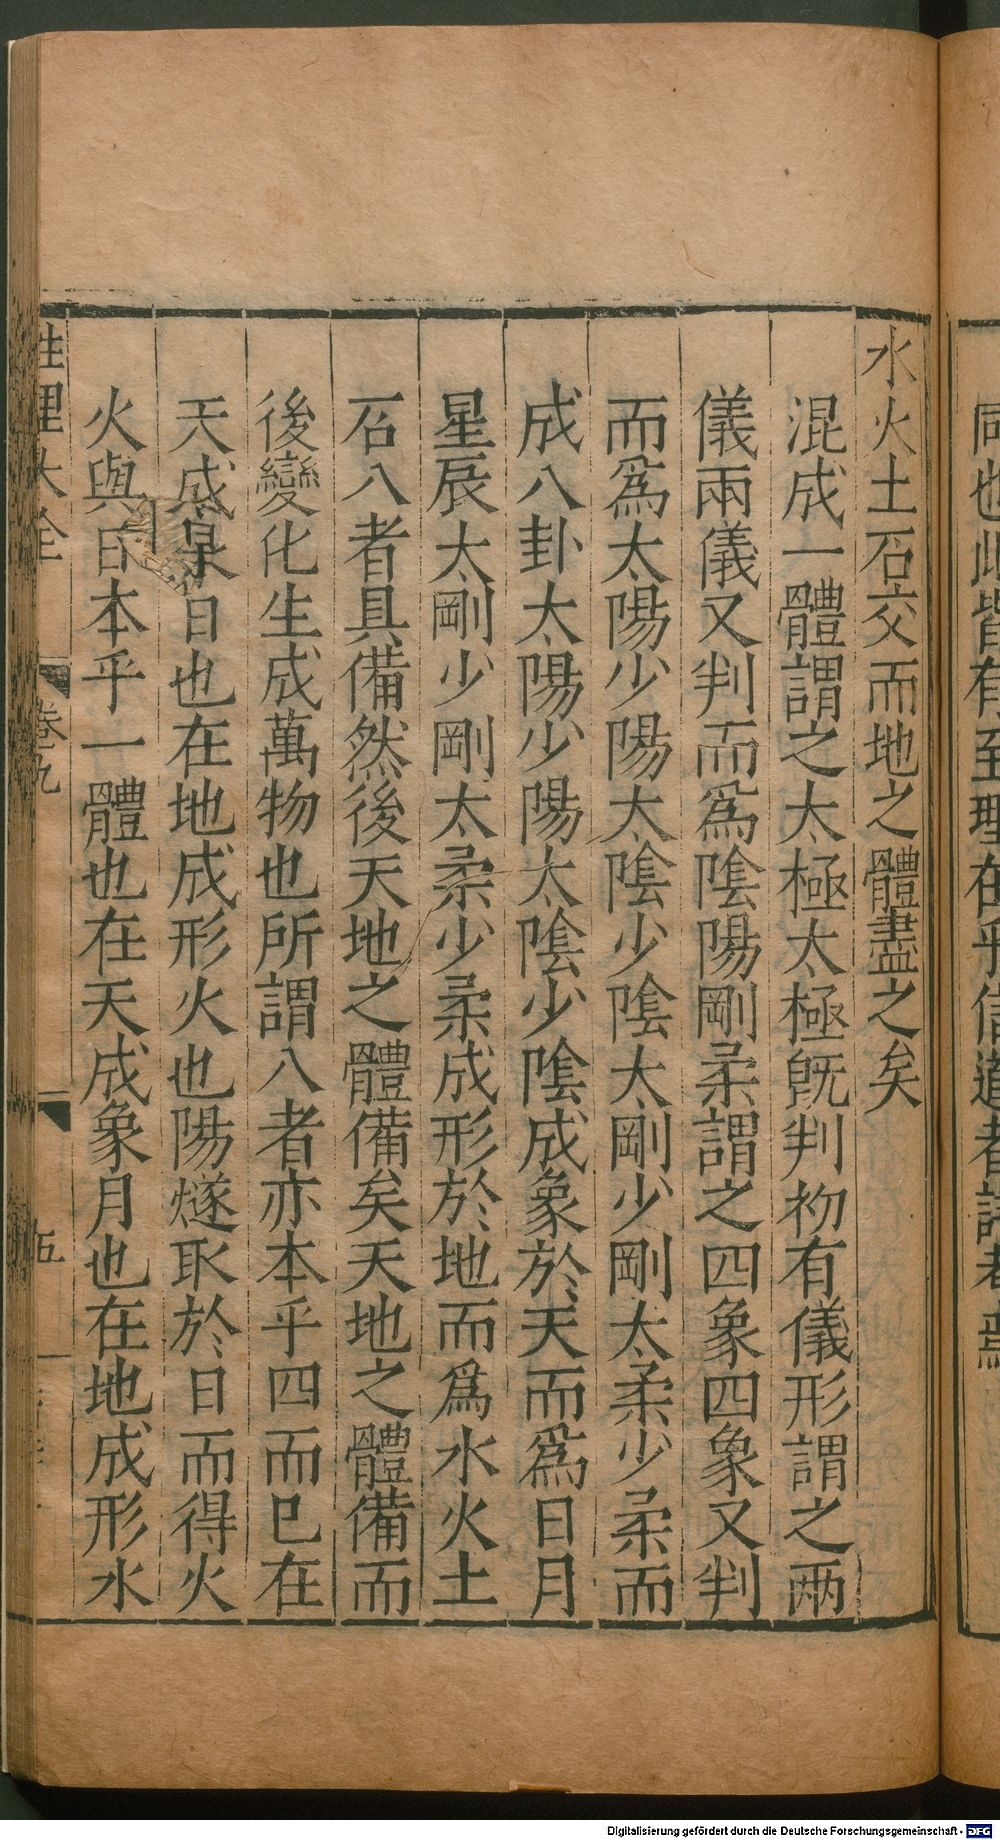 同也此皆有至理在乎信道者詳考焉
水火土石交而地之體盡之矣
混成一體謂之太極太極旣判初有儀形謂之兩
儀兩儀又判而爲陰陽剛柔謂之四象四象又判
而爲太陽少陽太陰少陰太剛少剛太柔少柔而
成八卦太陽少陽太陰少陰成象於天而爲日月
星辰太剛少剛太柔少柔成形於地而爲水火土
石八者具備然後天地之體備矣天地之體備而
後變化生成萬物也所謂八者亦本乎四而已在
天成象日也在地成形火也陽燧取於日而得火
火與日本乎一體也在天成象月也在地成形水
性理大全 卷九 五
Digitalisierung gefördert durch die Deutsche Forschungsgemeinschaft - DFG